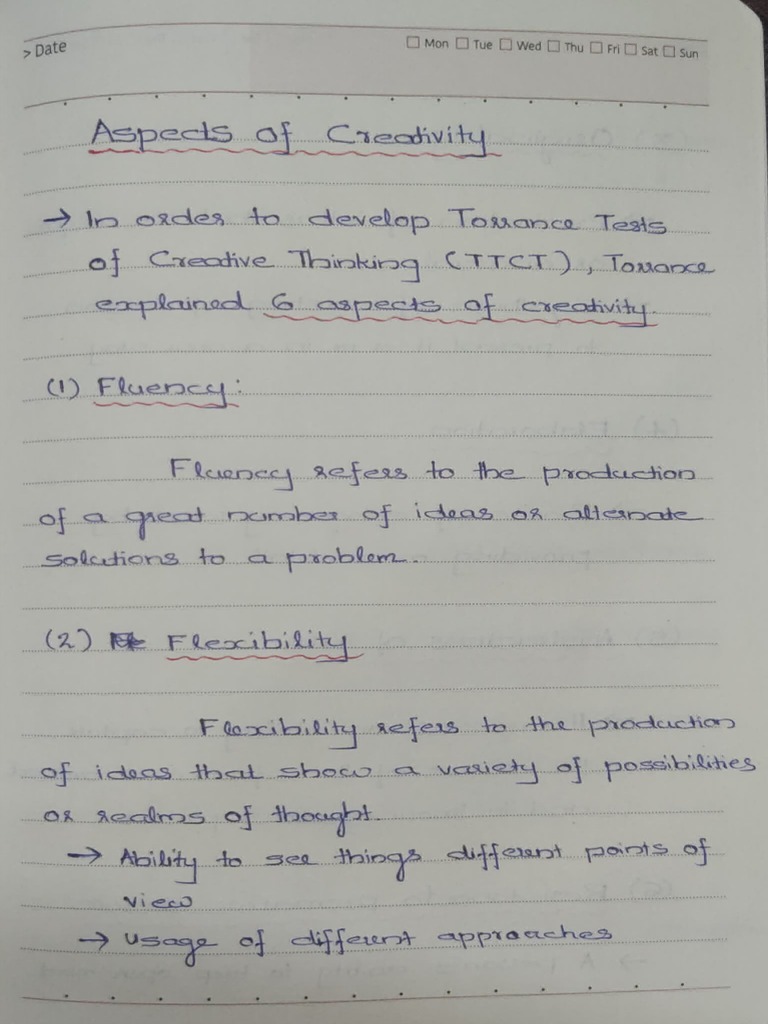 > Date
Mon Tue Wed Thu Fri Sat Sun
Aspects of Creativity
→ In order to develop Torrance Tests
of Creative Thinking (TTCT), Torrance
explained 6 aspects of creativity.
(1) Fluency:
Fluency refers to the production
of a great number of ideas or alternate
solutions to a problem.
(2) Flexibility
Flexibility refers to the production
of ideas that show a variety of possibilities
or realms of thought.
→ Ability to see things different points of
view
→ usage of different approaches